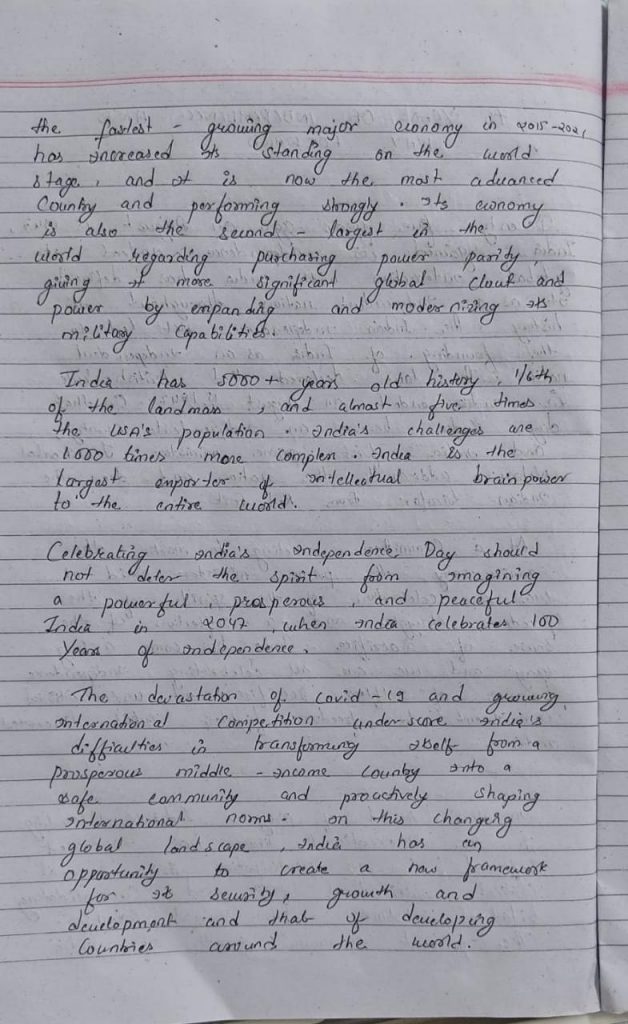 the fastest - growing major economy in 2015-2021
has increased its standing on the world
stage, and it is now the most advanced
Country and performing strongly. Its economy
is also the second - largest in the
world regarding purchasing power parity
giving it more significant global clout and
power by expanding and modernizing its
military Capabilities.
India has 5000+ years old history, 1/6th
of the landmass, and almost five times
the USA's population. India's challenges are
1000 times more complex. India is the
largest exporter of intellectual brain power
to the entire world.
Celebrating India's Independence Day should
not deter the spirit from imagining
a powerful, prosperous, and peaceful
India in 2047, when India celebrates 100
Years of independence.
The devastation of Covid-19 and growing
international Competition underscore India's
difficulties in transforming itself from a
prosperous middle - income Country into a
safe community and proactively shaping
international norms. on this changing
global landscape, India has an
opportunity to create a new framework
for it security, growth and
development and that of developing
Countries around the world.